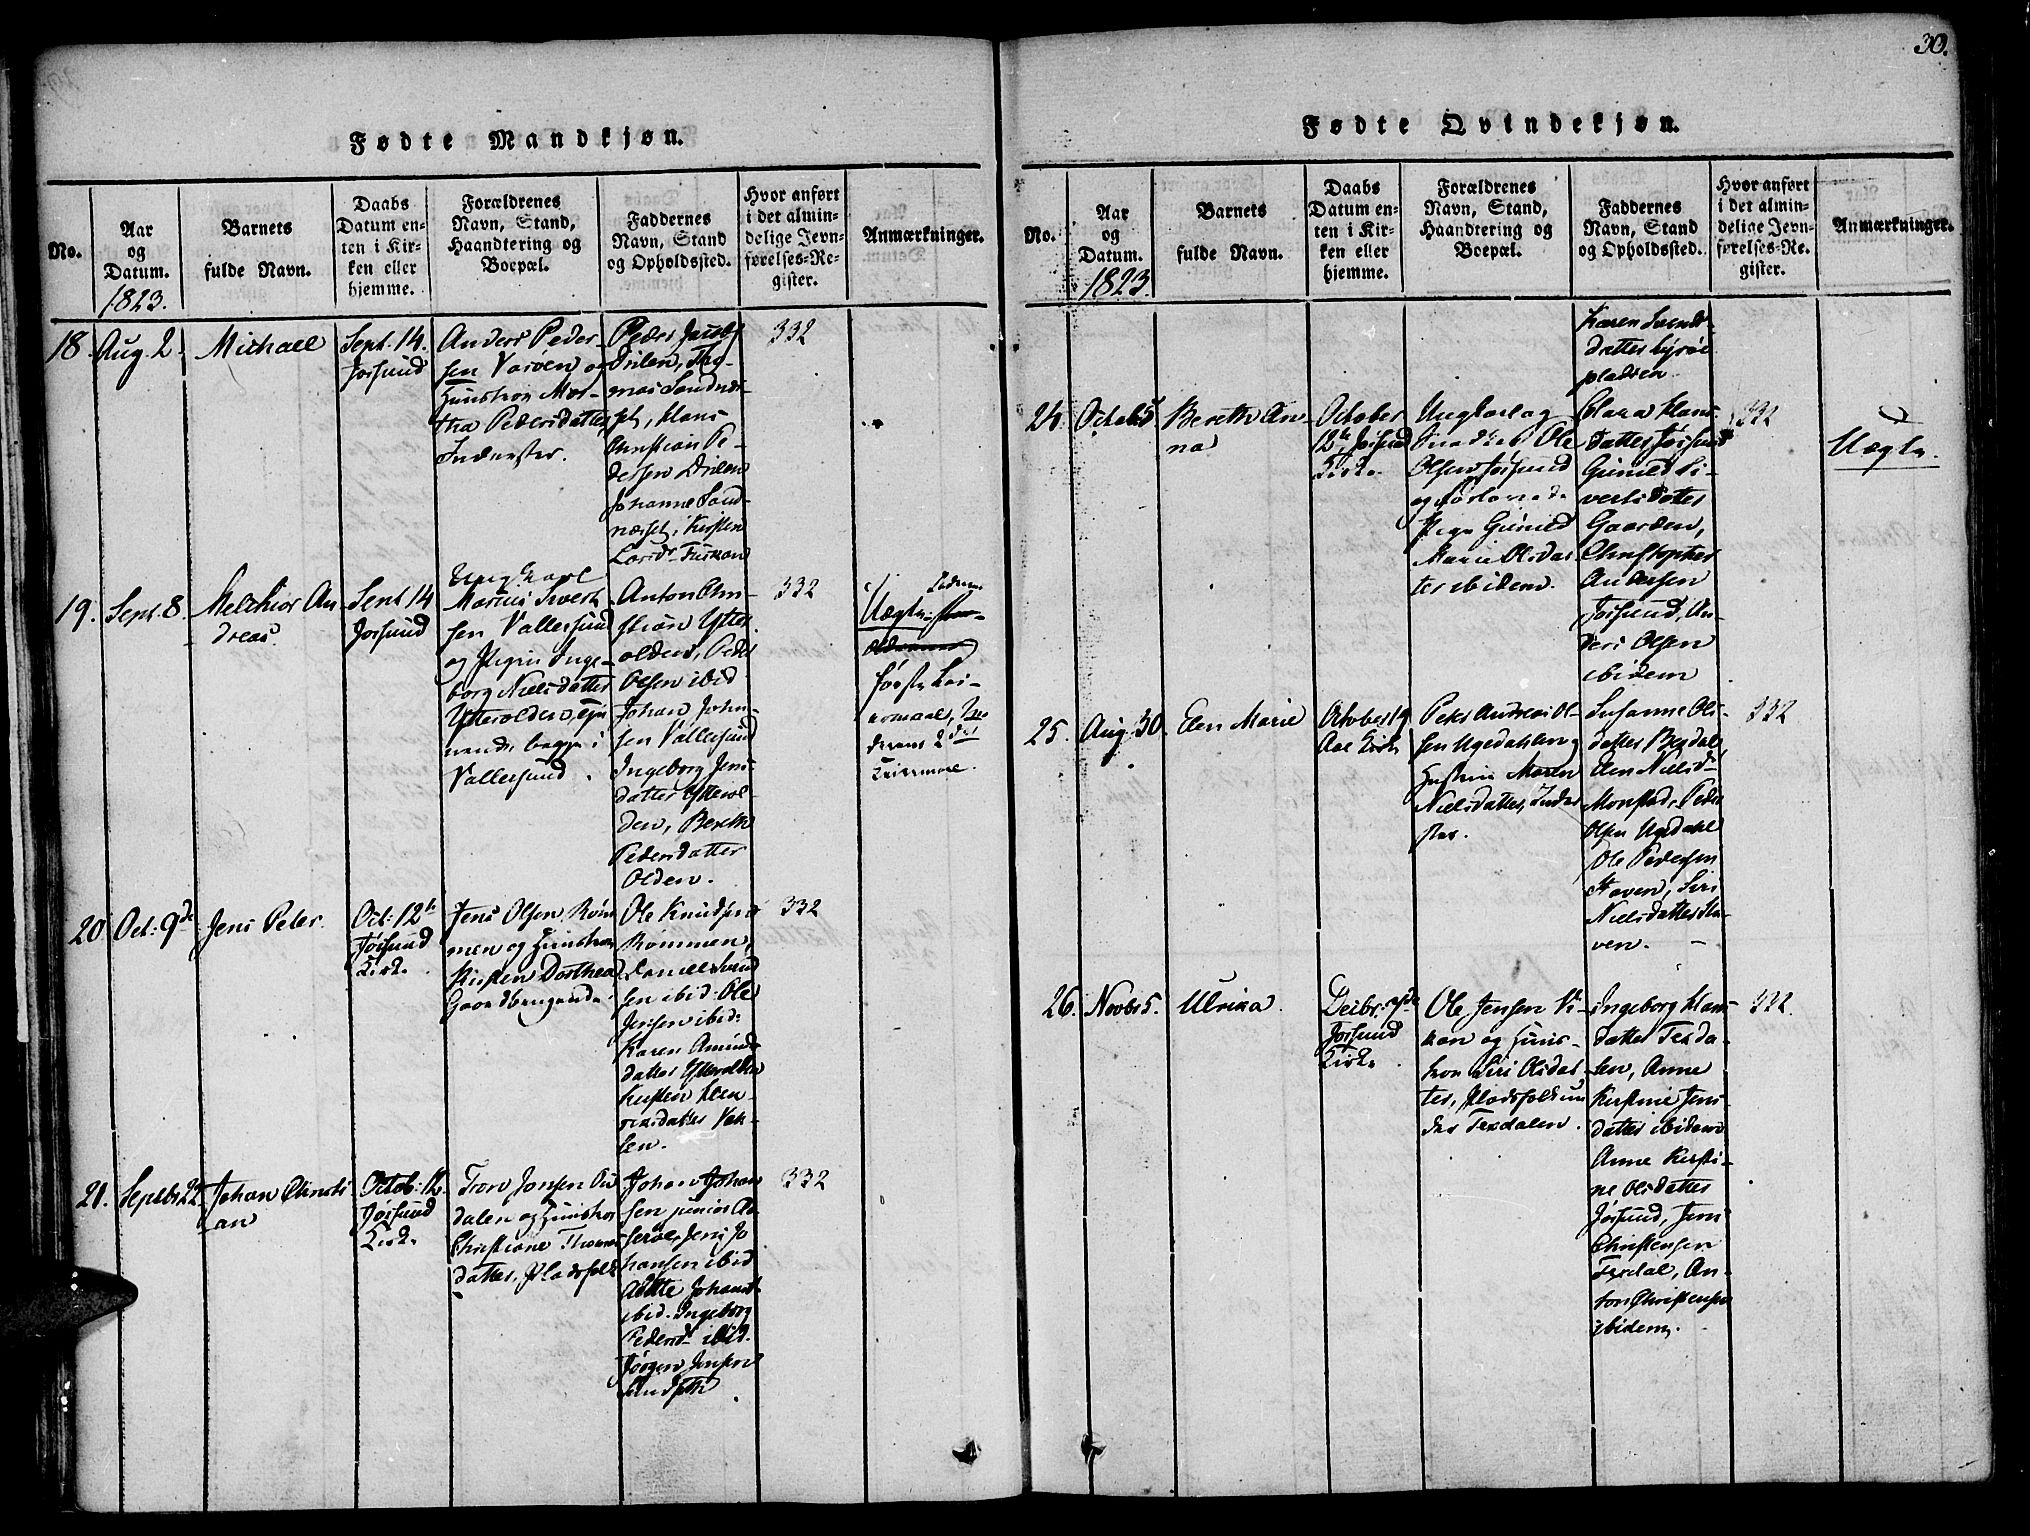 30.
Fødte Mandkjøn.
No.
Aar
og
Datum.
1823.
Barnets
fulde Navn.
Daabs
Datum en-
ten i Kir-
ken eller
hjemme.
Forældrenes
Navn, Stand,
Haandtering og
Boepæl.
Faddernes
Navn, Stand
og Opholdssted.
Hvor anført
i det almin-
delige Jevn-
førelses-Re-
gister.
Anmærkninger.
18.
Aug. 2.
Michael
Sept. 14.
Jøssund
Anders Peder-
sen Varøen og
Hunstron Mar-
tha Pedersdatter
Inderster.
Peder Jacobs
Drilen, Tho-
mas Sandnæs-
set, Hans
Christian Pe-
dersen Drilen
Johanne Sand-
næsset, Kirsten
Larsdr
332
19.
Sept. 8.
Melchior An
dreas.
Sept 14
Jøssund
Ungkarl
Marius Sivert
sen Vallersund
og Pigen Inge-
borg Nielsdatter
Ytterolden, tje
nende begge i
Vallersund.
Anton Chri-
stian Ytter-
olden, Peder
Olsen ibid
Johan John-
sen Vallersund
Ingeborg Jens-
datter Ytterol-
den, Bereth
Pedersdatter
Olden.
332
Uægte.
Faderens
første Lei-
ermaal, Mo
derens 2det
Leiermaal.
20
Oct: 9de
Jens Peter.
Oct: 12te
Jøssund
Kirke.
Jens Olsen Røm
men og Hunstron
Kirsten Dorthea
Gaardbrugende.
Ole Knudsen
Rømmen,
Daniel Svend
sen ibid: Ole
Jensen ibid:
Karen Amund
datter Ytterolden
Kirsten Hen-
richsdatter Val-
sen.
332
21.
Septbr 22.
Johan Christi
an
Octob: 12.
Jøssund
Kirke
Tron Jonsen Au
dalen og Hunstron
Christiane Thomas
datter, Pladsfolk
Johan Johan
sen junior Ad
serøe, Jens Jo
hansen ibid
Adette Johansd.
ibid. Ingeborg
Pedersd. ibid.
Jørgen Jensen
332
Fødte Qvindekjøn.
No.
Aar
og
Datum.
1823.
Barnets
fulde Navn.
Daabs
Datum en-
ten i Kir-
ken eller
hjemme.
Forældrenes
Navn, Stand,
Haandtering og
Boepæl.
Faddernes
Navn, Stand
og Opholdssted.
Hvor anført
i det almin-
delige Jevn-
førelses-Re-
gister.
Anmærkninger.
Karen Svends-
datter Lysøe
pladsen
24.
Octob: 5
Bereth An-
na
October
12te Jøssund
Kirke.
Ungkarl og
Ole
Olsen Jøssund
og
Pige Gunild
Marie Olsdat
ter ibidem.
Clara Hans-
datter Jøssund
Gunild Si-
vertsdatter
Gaarden,
Christopher
Andersen
Jøssund, An-
ders Olsen
ibidem
332
Uægte.
25.
Aug: 30.
Elen Marie
October 19
Aae Kirke
Peter Andreas Ol-
sen Ugedahlen og
Hustrue Maren
Nielsdatter, Inder
ster.
Susanne Ols-
datter Bergdal,
Elen Nielsd.
Monstad, Peder
Olsen Ugedahl
Ole Pedersen
Haven, Siri
Nielsdatter Ha-
ven.
332
26.
Novbr 5.
Ulrika.
Decbr: 7de
Jøssund
Kirke
Ole Jensen Vi-
kan og Huns-
tron Siri Olsdat-
ter, Pladsfolk un
der Terdalen.
Ingeborg Hans-
datter Texda-
len, Anne
Kirstine Jens
datter ibidem
Anne Kirsti-
ne Olsdatter
Jøssund, Jens
Christensen
Texdal, An-
ton Christensen
ibidem.
332.